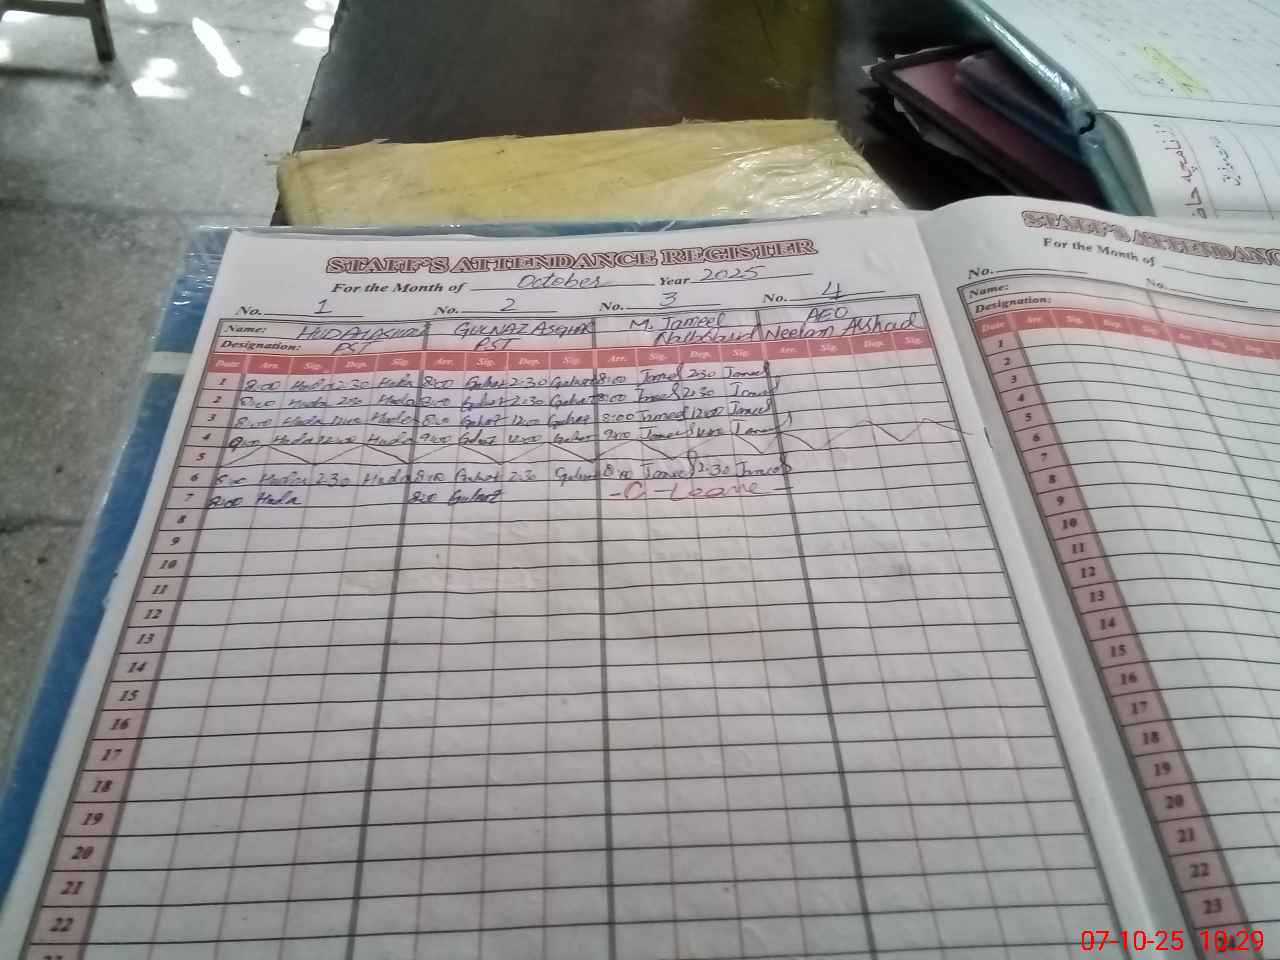 STAFF'S ATTENDANCE REGISTER
For the Month of October Year 2025
No. 1 No. 2 No. 3 No. 4
Name: HUDA GULNAZ ASGHAR M. Jameel AEO
Designation: PST PST Naib Neelam Arshad
Date Arr. Sig. Dep. Sig. Arr. Sig. Dep. Sig. Arr. Sig. Dep. Sig. Arr. Sig. Dep. Sig.
1 8:00 Huda 2:30 Huda 8:00 Gulnaz 2:30 Gulnaz 8:00 Jameel 2:30 Jameel
2 8:00 Huda 2:30 Huda 8:00 Gulnaz 2:30 Gulnaz 8:00 Jameel 2:30 Jameel
3 8:00 Huda 12:00 Huda 8:00 Gulnaz 12:00 Gulnaz 8:00 Jameel 12:00 Jameel
4 9:00 Huda 12:00 Huda 9:00 Gulnaz 12:00 Gulnaz 9:00 Jameel Jameel
5
6 8:00 Huda 2:30 Huda 8:00 Gulnaz 2:30 Gulnaz 8:00 Jameel 2:30 Jameel
7 8:00 Huda 8:00 Gulnaz - C - Leave -
8
9
10
11
12
13
14
15
16
17
18
19
20
21
22
STAFF'S ATTENDANC
For the Month of
No. No.
Name:
Designation:
Date Arr. Sig. Dep. Sig. Arr. Sig. Dep.
1
2
3
4
5
6
7
8
9
10
11
12
13
14
15
16
17
18
19
20
21
22
23
07-10-25 10:29